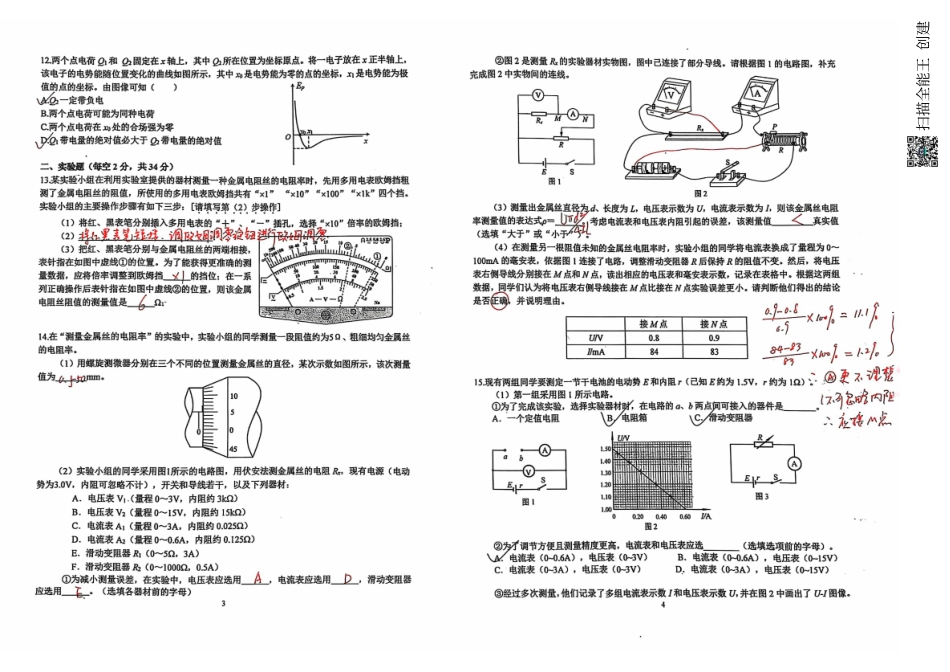 12.两个点电荷 Q₁和 Q₂固定在 x 轴上，其中 Q₂所在位置为坐标原点。将一电子放在 x 正半轴上，
该电子的电势能随位置变化的曲线如图所示，其中 x₀是电势能为零的点的坐标，x₁是电势能为极
值的点的坐标。由图像可知（ ）
A.Q₂一定带负电
B.两个点电荷可能为同种电荷
C.两个点电荷在 x₀处的合场强为零
D.Q₁带电量的绝对值必大于 Q₂带电量的绝对值
Eₚ
O
x₀x₁
x
二、实验题（每空 2 分，共 34 分）
13.某实验小组在利用实验室提供的器材测量一种金属电阻丝的电阻率时，先用多用电表欧姆挡粗
测了金属电阻丝的阻值，所使用的多用电表欧姆挡共有“×1”“×10”“×100”“×1k”四个挡。
实验小组的主要操作步骤有如下三步：[请填写第（2）步操作]
（1）将红、黑表笔分别插入多用电表的“＋”、“－”插孔，选择“×10”倍率的欧姆挡；
（2）将红黑表笔短接，调欧姆调零旋钮进行欧姆调零
（3）把红、黑表笔分别与金属电阻丝的两端相接，
表针指在如图中虚线①的位置。为了能获得更准确的测
量数据，应将倍率调整到欧姆挡 ×1 的挡位；在一系
列正确操作后表针指在如图中虚线②的位置，则该金属
电阻丝阻值的测量值是 6 Ω；
A－V－Ω
14.在“测量金属丝的电阻率”的实验中，实验小组的同学测量一段阻值约为5Ω、粗细均匀金属丝
的电阻率。
（1）用螺旋测微器分别在三个不同的位置测量金属丝的直径，某次示数如图所示，该次测量
值为 mm。
10
5
0
45
0
（2）实验小组的同学采用图1所示的电路图，用伏安法测金属丝的电阻 Rₓ，现有电源（电动
势为3.0V，内阻可忽略不计），开关和导线若干，以及下列器材：
A．电压表 V₁（量程 0～3V，内阻约 3kΩ）
B．电压表 V₂（量程 0～15V，内阻约 15kΩ）
C．电流表 A₁（量程 0～3A，内阻约 0.025Ω）
D．电流表 A₂（量程 0～0.6A，内阻约 0.125Ω）
E．滑动变阻器 R₁（0～5Ω，3A）
F．滑动变阻器 R₂（0～1000Ω，0.5A）
①为减小测量误差，在实验中，电压表应选用 A ，电流表应选用 D ，滑动变阻器
应选用 E 。（选填各器材前的字母）
3
②图 2 是测量 Rₓ的实验器材实物图，图中已连接了部分导线。请根据图 1 的电路图，补充
完成图 2 中实物间的连线。
V
Rₓ
M
A
N
R
E
S
图 1
V
A
Rₓ
P
R
S
图 2
（3）测量出金属丝直径为 d、长度为 L，电压表示数为 U，电流表示数为 I，则该金属丝电阻
率测量值的表达式ρ= 考虑电流表和电压表内阻引起的误差，该测量值 < 真实值
（选填“大于”或“小于”）。
（4）在测量另一根阻值未知的金属丝电阻率时，实验小组的同学将电流表换成了量程为 0～
100mA 的毫安表，依据图 1 连接了电路，调整滑动变阻器 R 后保持 R 的阻值不变。然后，将电压
表右侧导线分别接在 M 点和 N 点，读出相应的电压表和毫安表示数，记录在表格中。根据这两组
数据，同学们认为将电压表右侧导线接在 M 点比接在 N 点实验误差更小。请判断他们得出的结论
是否正确，并说明理由。
接 M 点 接 N 点
U/V 0.8 0.9
I/mA 84 83
0.9-0.8/0.9 ×100% = 11.1%
84-83/83 ×100% = 1.2%
∴ Ⓐ更不理想
不可忽略内阻
∴ 应接 M点
15.现有两组同学要测定一节干电池的电动势 E 和内阻 r（已知 E 约为 1.5V，r 约为 1Ω）：
（1）第一组采用图 1 所示电路。
①为了完成该实验，选择实验器材时，在电路的 a、b 两点间可接入的器件是 。
A．一个定值电阻 B．电阻箱 C．滑动变阻器
a
b
A
V
E
r
S
图 1
U/V
1.50
1.40
1.30
1.20
1.10
1.00
0 0.20 0.40 0.60 I/A
图 2
R
A
E
r
S
图 3
②为了调节方便且测量精度更高，电流表和电压表应选 （选填选项前的字母）。
A．电流表（0~0.6A），电压表（0~3V） B．电流表（0~0.6A），电压表（0~15V）
C．电流表（0~3A），电压表（0~3V） D．电流表（0~3A），电压表（0~15V）
③经过多次测量，他们记录了多组电流表示数 I 和电压表示数 U，并在图 2 中画出了 U-I 图像。
4
扫描全能王 创建